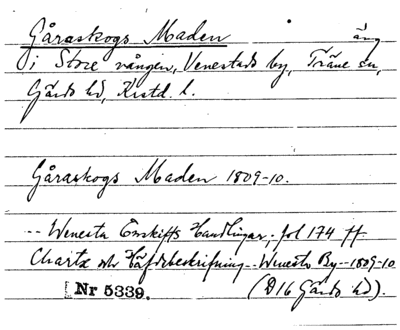 Gåraskogs Maden äng
i Store vången, Venestads by, Träne sn,
Gärds hd, Krstd. l.
Gåraskogs Maden 1809-10.
-- Wenesta Enskifts Handlingar, fol 174 ff
Charta och Häfdebeskrifning -- Wenesta By -- 1809-10
[Nr 5339. (D16 Gärds hd).